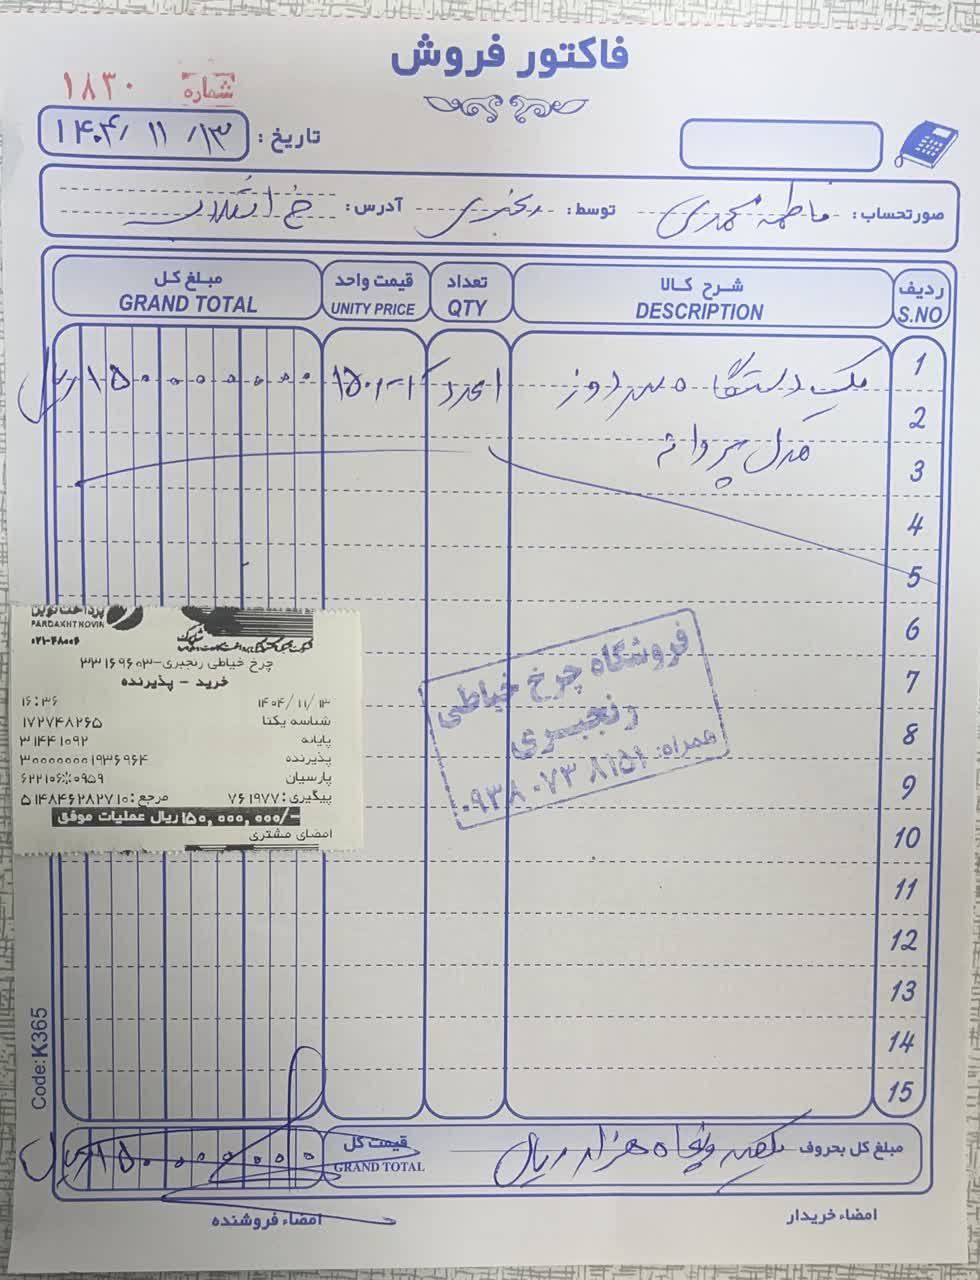 فاکتور فروش
شماره ۱۸۳۰
تاریخ : ۱۴۰۴/۱۱/۱۳
صورتحساب : فاطمه محمدی توسط : رنجبری آدرس : خ انقلاب
ردیف شرح کالا تعداد قیمت واحد مبلغ کل
S.NO DESCRIPTION QTY UNITY PRICE GRAND TOTAL
1 یک دستگاه سردوز ۱ عدد ۱۵۰۰۰۰۰۰۰ ریال
2 مدل پروانه
3
4
5
6
7
8
9
10
11
12
13
14
15
پرداخت نوین
PARDAKHT NOVIN
۰۲۱-۴۸۰۰۶
چرخ خیاطی رنجبری-۳۳۱۶۹۶۰۳
خرید - پذیرنده
۱۴۰۴/۱۱/۱۳ ۱۶:۳۶
شناسه یکتا ۱۷۲۷۴۸۲۶۵
پایانه ۳۱۴۴۱۰۹۲
پذیرنده ۳۰۰۰۰۰۰۰۱۹۳۶۹۶۴
پارسیان ۶۲۲۱۰۶※۰۹۵۹
پیگیری: ۷۶۱۹۷۷ مرجع: ۵۱۴۸۴۶۲۸۲۷۱۰
۱۵۰,۰۰۰,۰۰۰/- ریال عملیات موفق
امضای مشتری
فروشگاه چرخ خیاطی
رنجبری
همراه: ۰۹۳۸۰۷۳۸۱۵۱
Code: K365
مبلغ کل بحروف یکصد و پنجاه هزار ریال قیمت کل ۱۵۰۰۰۰۰۰۰ ریال
GRAND TOTAL
امضاء خریدار امضاء فروشنده